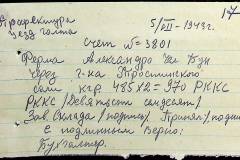 17
Префектура
уезд Голта
5/VII - 1943г.
Счет № 3801
Ферма Александро
через г-на Тростинского
кгр. 485 х 2 = 970 РККС
РККС /Девятьсот семдесят/
Зав. Склада /подпись/ Принял /подпи
С подлинным Верно:
Бухгалтер.